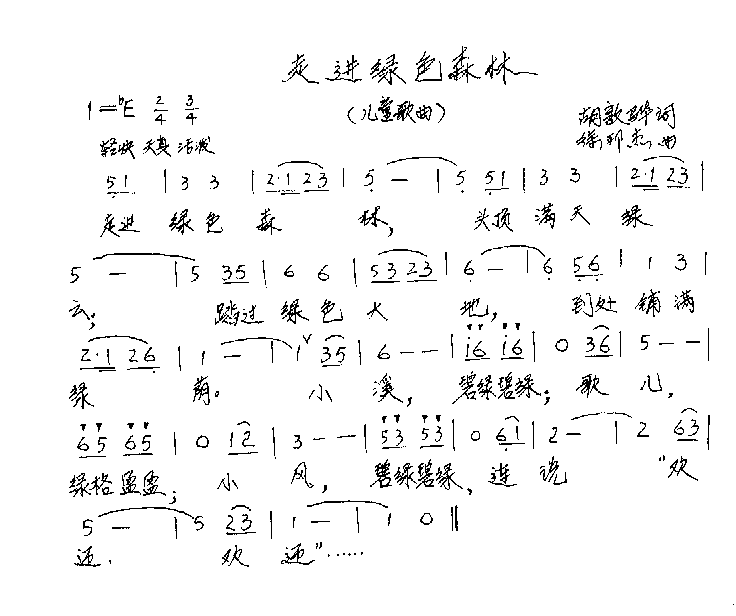 走进绿色森林
(儿童歌曲)
1=ᵇE 2/4 3/4
胡敦骅词
轻快 天真 活泼
徐邦杰曲
5̣1 | 3 3 | 2·1 23 | 5 — | 5 5̣1 | 3 3 | 2·1 23 |
走进 绿色 森 林, 头顶 满天 绿
5 — | 5 35 | 6 6 | 53 23 | 6̣ — | 6̣ 5̣6̣ | 1 3 |
云; 踏过 绿色 大 地, 到处 铺满
2·1 26̣ | 1 — | 1 ∨ 35 | 6 - - | i6 i6 | 0 36 | 5 - - |
绿 荫。 小 溪, 碧绿碧绿; 歌 儿,
65 65 | 0 12 | 3 - - | 53 53 | 0 6̣1 | 2 — | 2 6̣3 |
绿格盈盈; 小 风, 碧绿碧绿, 连 说 "欢
5 — | 5 23 | 1 — | 1 0 ‖
迎. 欢 迎"……